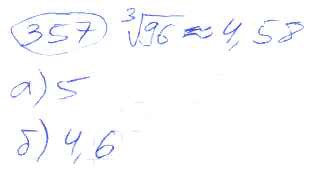 357 ∛96 ≈ 4,58
а) 5
б) 4,6